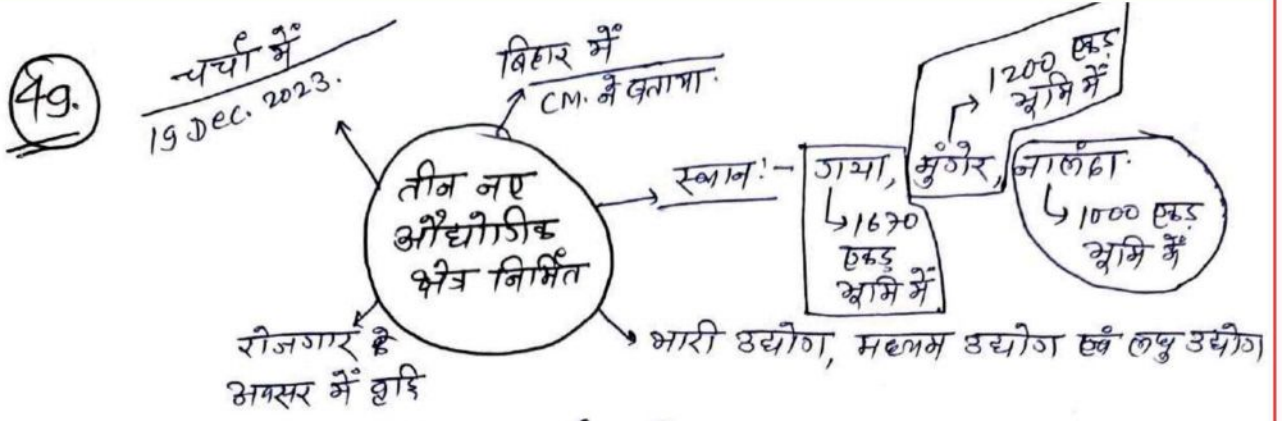 49.
चर्चा में
19 Dec. 2023.
बिहार में
CM. ने बताया.
तीन नए
औद्योगिक
क्षेत्र निर्मित
स्थान:- गया, मुंगेर, नालंदा.
1200 एकड़
भूमि में
1670
एकड़
भूमि में
1000 एकड़
भूमि में
रोजगार के
अवसर में वृद्धि
भारी उद्योग, मध्यम उद्योग एवं लघु उद्योग